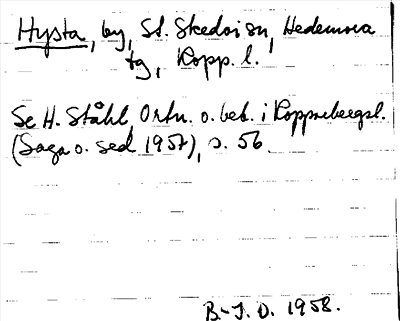 Hysta, by, St. Skedvi sn, Hedemora
tg, Kopp. l.
Se H. Ståhl Ortn. o. beb. i Kopparbergsl.
(Saga o. sed 1957), s. 56.
B.-J. O. 1958.